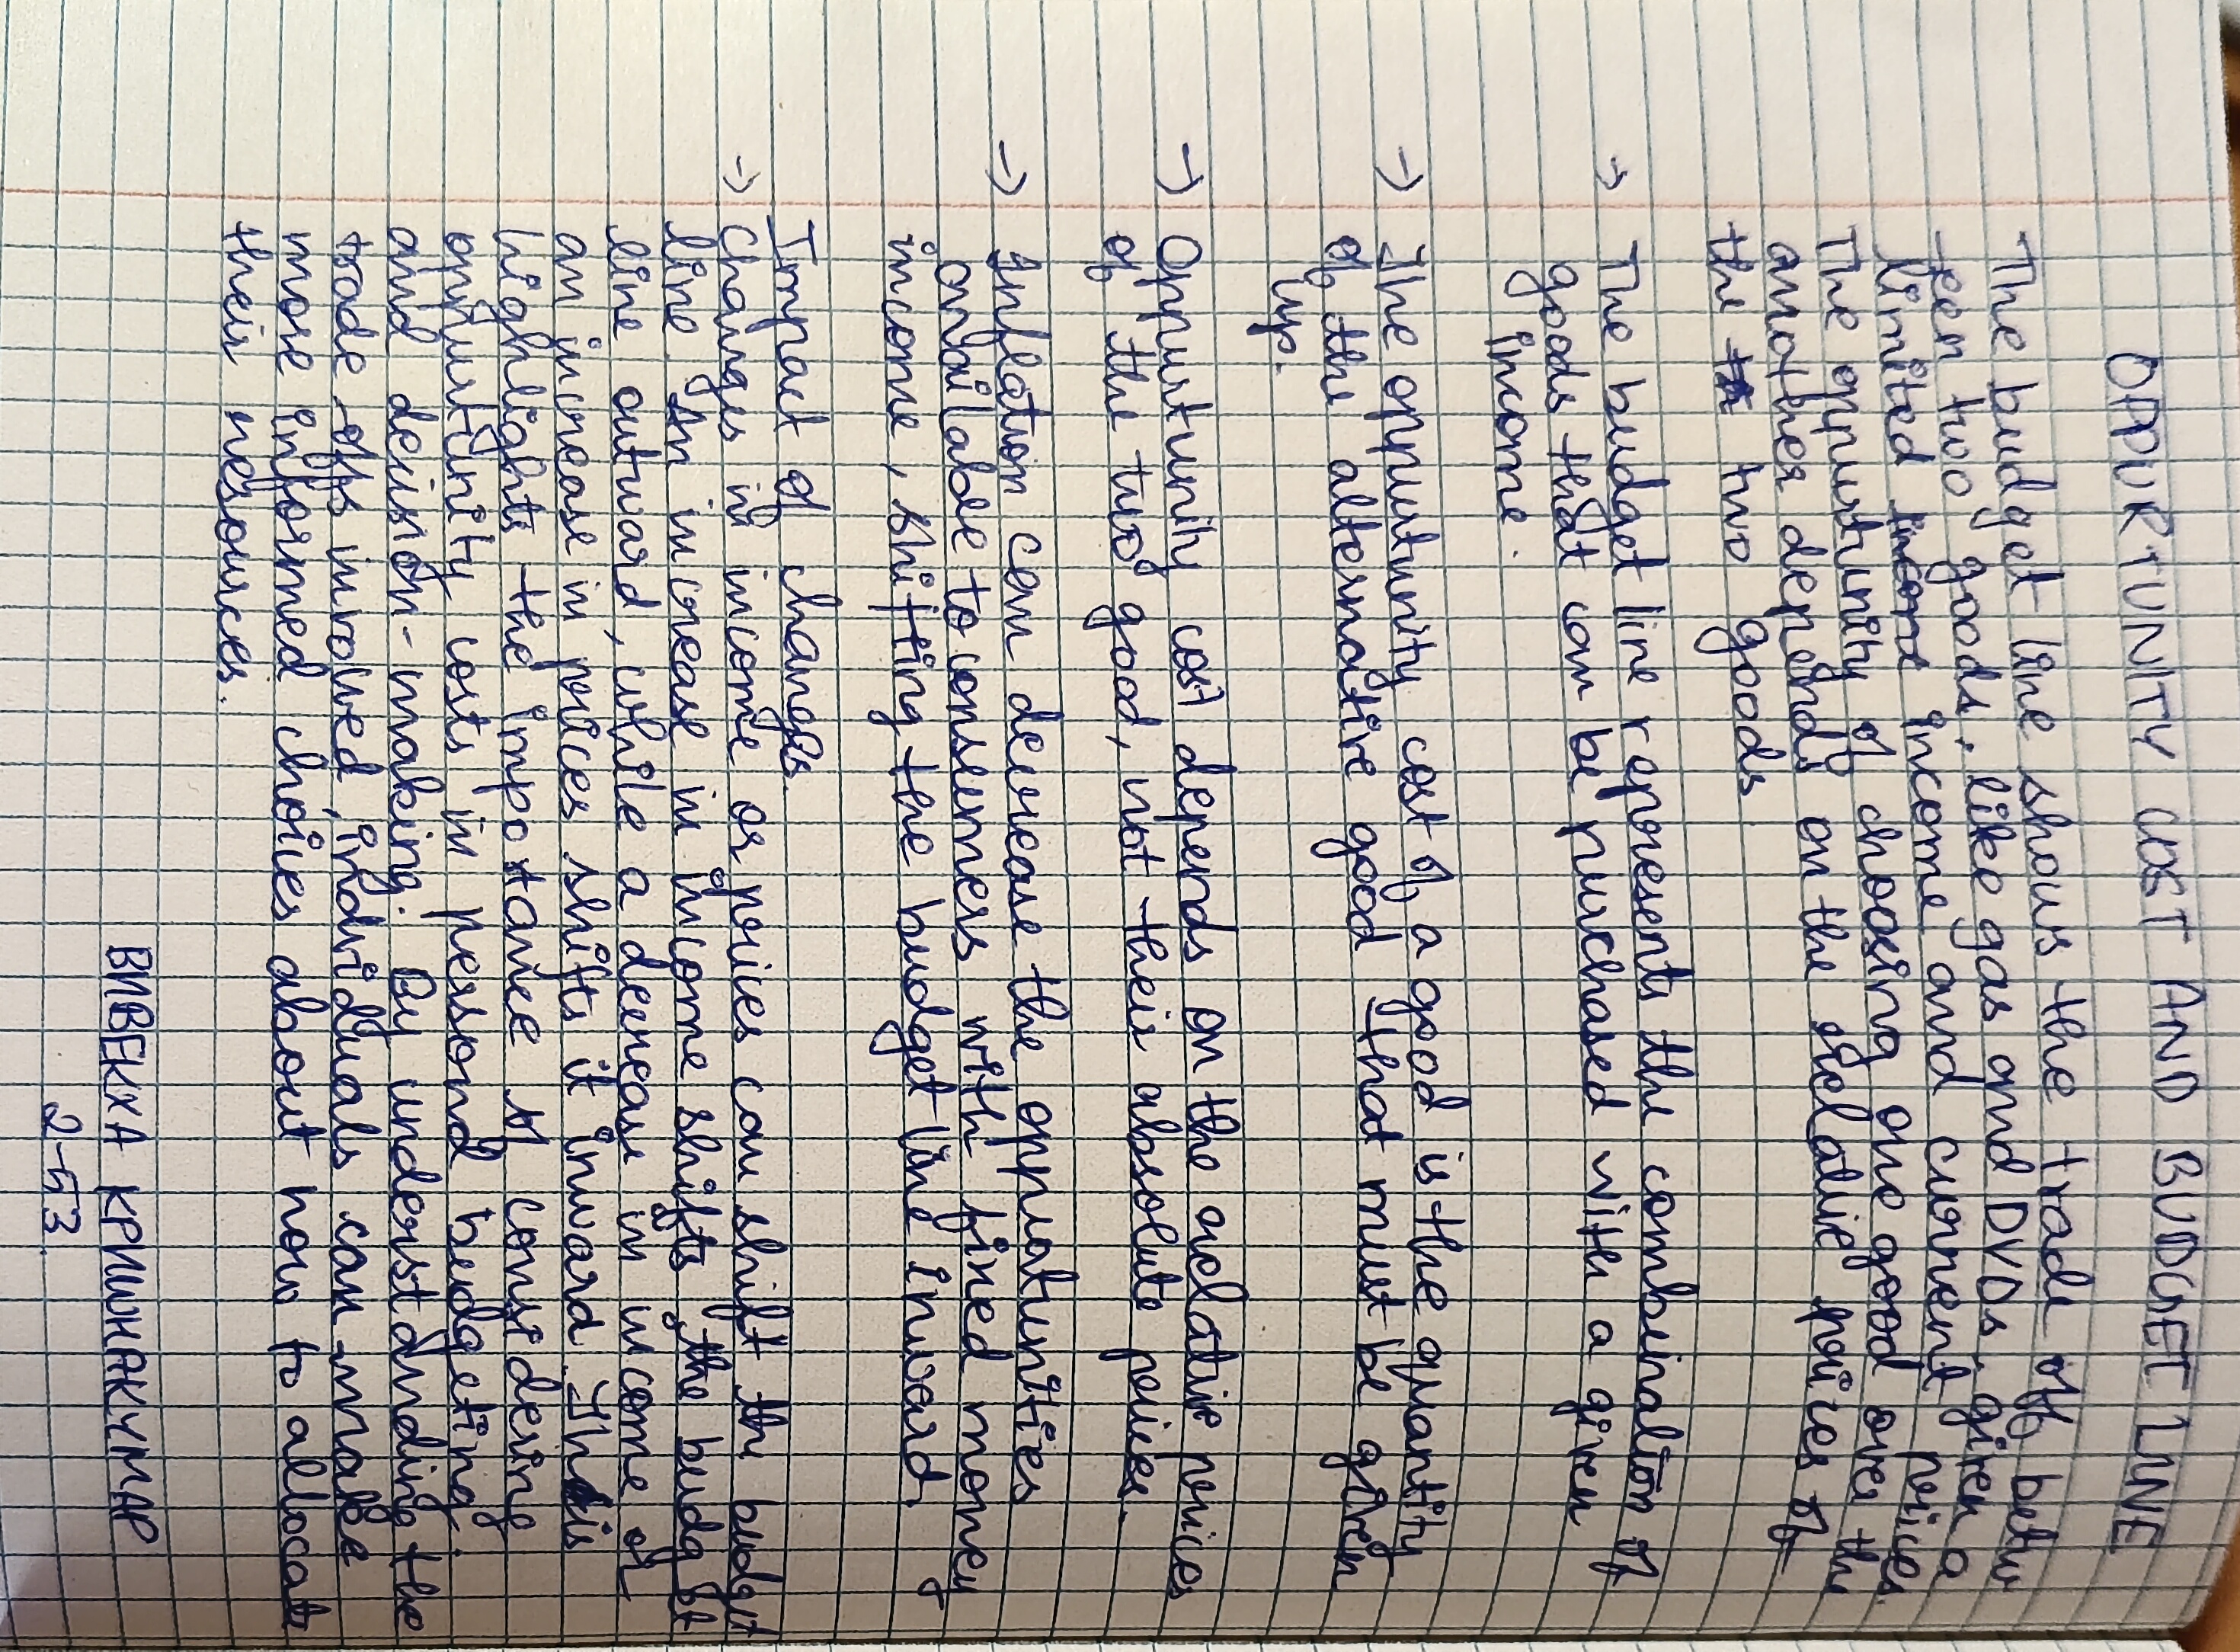 OPPURTUNITY COST AND BUDGET LINE
The budget line shows the trade off betw
-een two goods, like gas and DVDs, given a
limited income and current prices.
The oppurtunity of choosing one good over the
another depends on the relative prices of
the two goods
→ The budget line represents the combination of
goods that can be purchased with a given
income.
→ The oppurtunity cost of a good is the quantity
of the alternative good that must be given
up.
→ Oppurtunity cost depends on the relative prices
of the two good, not their absolute prices.
→ Inflation can decrease the oppurtunities
available to consumers with fixed money
income, shifting the budget line inward.
Impact of changes
→ Changes in income or prices can shift the budget
line. An increase in income shifts the budget
line outward, while a decrease in income or
an increase in prices shifts it inward. This
highlights the importance of considering
oppurtunity costs in personal budgeting
and decision-making. By understanding the
trade-offs involved, individuals can make
more informed choices about how to allocate
their resources.
ВИВЕКХА КРИШНАКУМАР
2-53